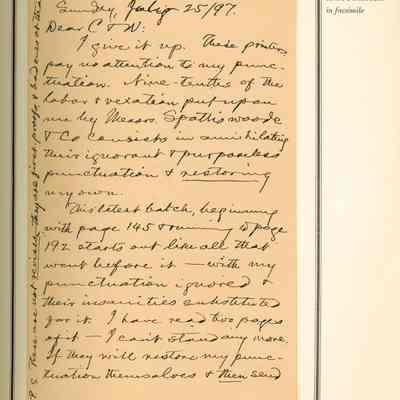 in facsimile
Sunday, July 25/97.
Dear C & W:
I give it up. These printers
pay no attention to my punc-
tuation. Nine-tenths of the
labor & vexation put upon
me by Messrs. Spottiswoode
& Co consists in annihilating
their ignorant & purposeless
punctuation & restoring
my own.
This latest batch, beginning
with page 145 & running to page
192 starts out like all that
went before it — with my
punctuation ignored &
their insanities substituted
for it. I have read two pages
of it — I can't stand any more.
If they will restore my punc-
tuation themselves & then send
P.S. These are not revises, they are first-proofs, & bad ones at that